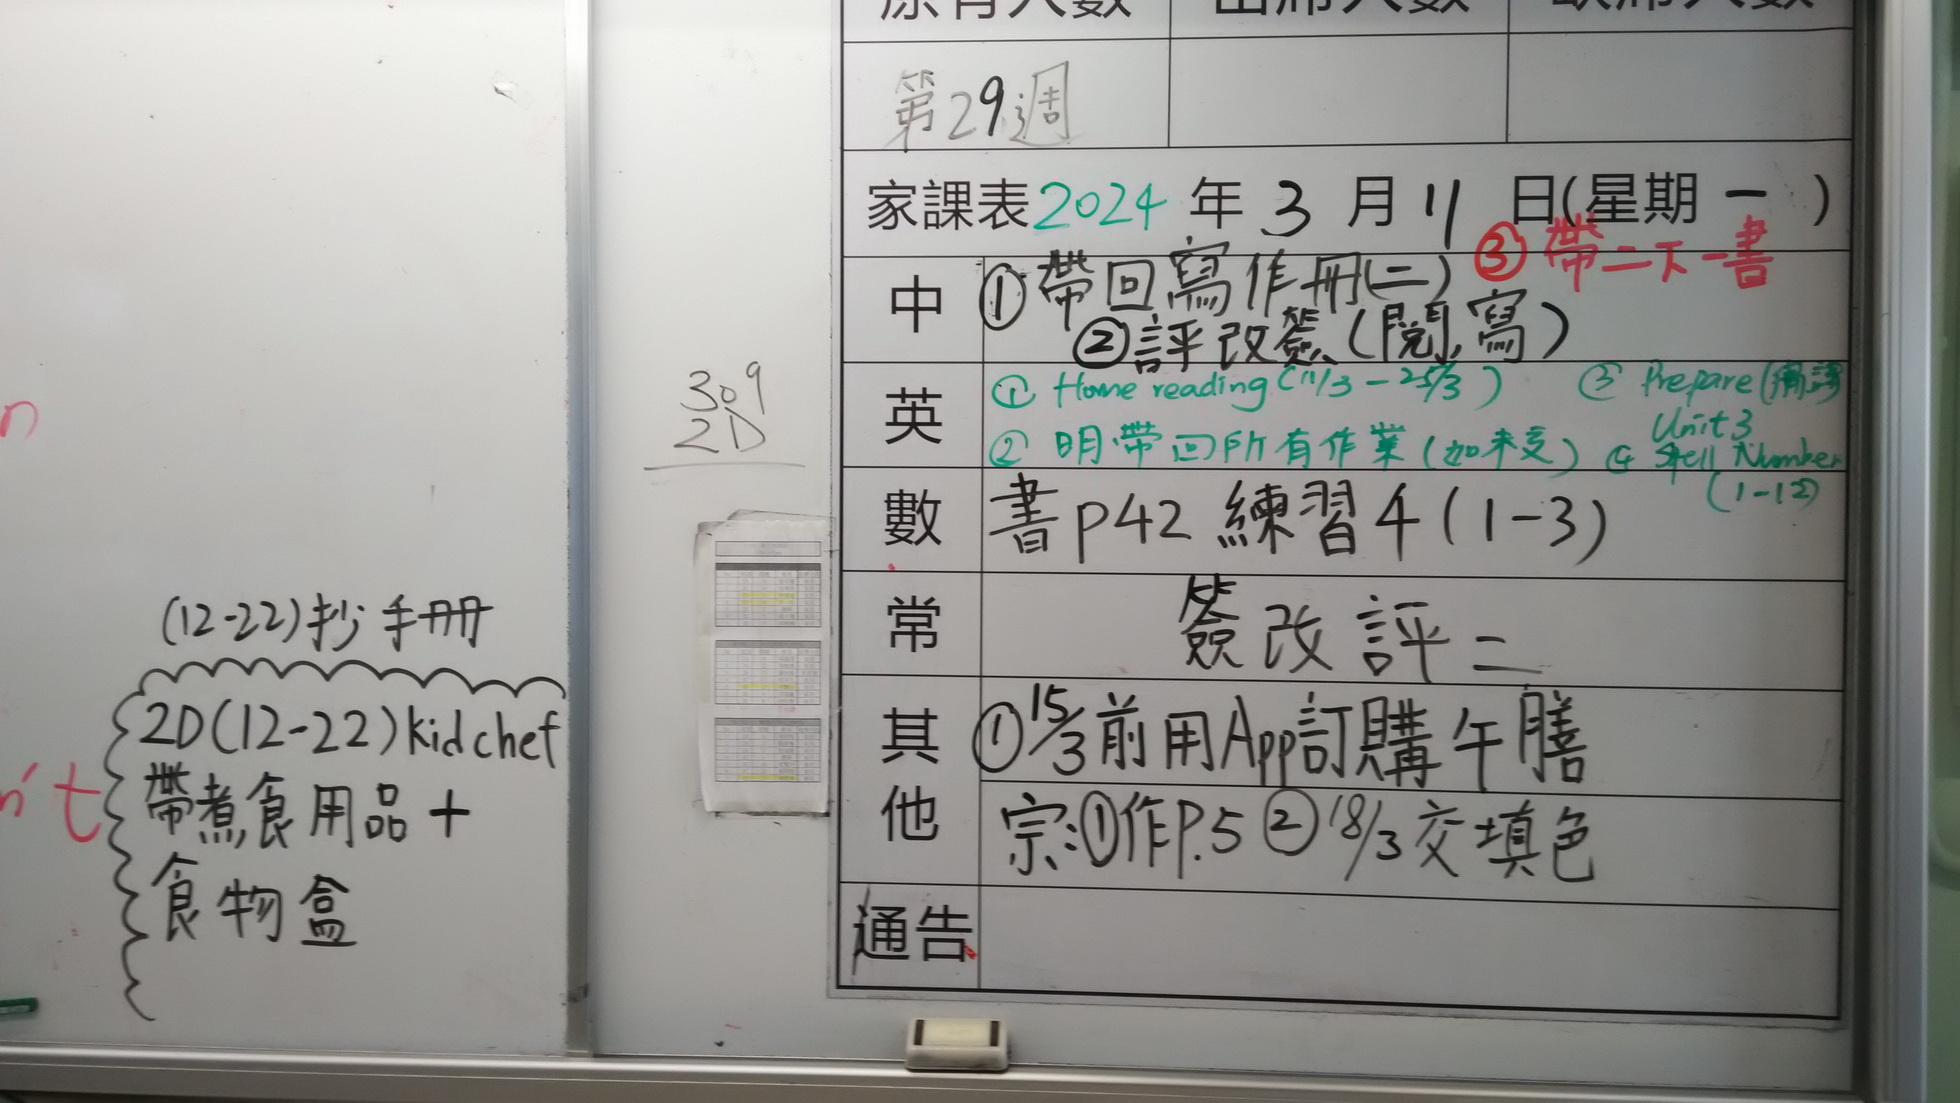 原有人數 出席人數 缺席人數
第29週
家課表2024年3月11日(星期一)
中 ①帶回寫作冊(二) ③帶二下一書
②評改簽(閱,寫)
英 ① Home reading (11/3-25/3) ③ Prepare(
② 明帶回所有作業(如未交) Unit 3
④ Spell Number
(1-12)
數 書P42 練習4(1-3)
常 簽改評二
其他 ①15/3前用App訂購午膳
宗:①作P.5 ②18/3交填色
通告
309
2D
(12-22)抄手冊
2D(12-22)kid chef
帶煮食用品+
食物盒
n
n't